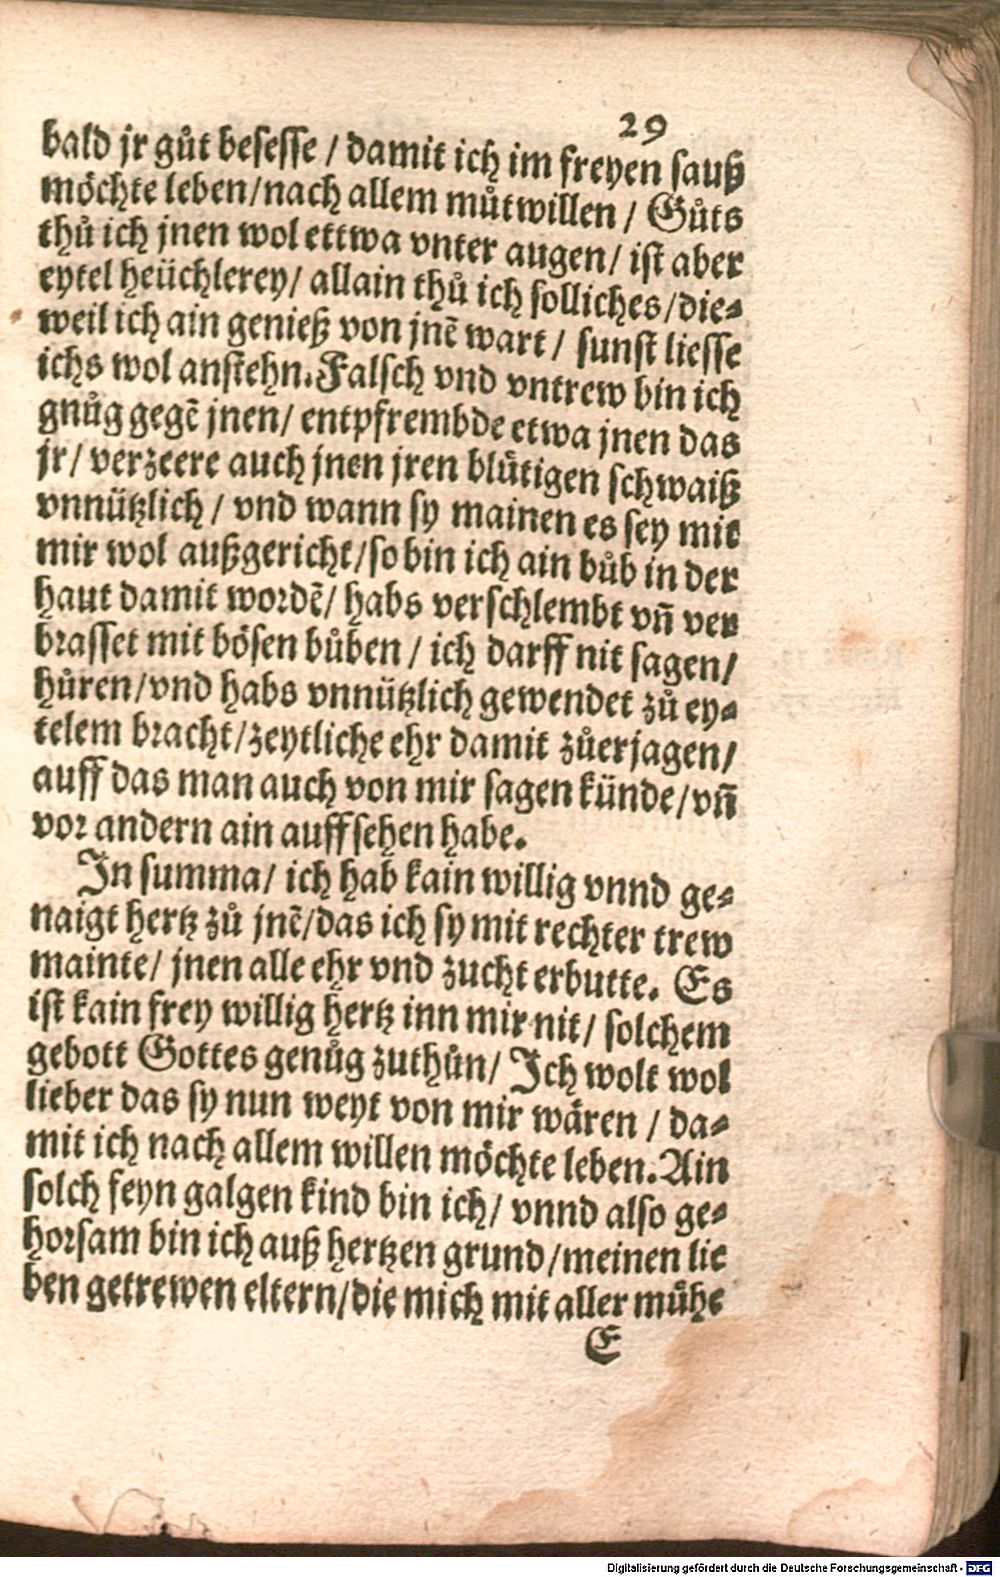 29
bald jr gůt besesse / damit ich im freyen sauß
möchte leben/nach allem můtwillen / Gůts
thů ich jnen wol ettwa vnter augen/ ist aber
eytel heüchlerey/ allain thů ich solliches/die⸗
weil ich ain genieß von jnē wart / sunst liesse
ichs wol anstehn. Falsch vnd vntrew bin ich
gnůg gegē jnen/ entpfrembde etwa jnen das
jr/ verzeere auch jnen jren blůtigen schwaiß
vnnützlich / vnd wann sy mainen es sey mit
mir wol außgericht/so bin ich ain bůb in der
haut damit wordē/ habs verschlembt vñ ver
brasset mit bösen bůben / ich darff nit sagen/
hůren/vnd habs vnnützlich gewendet zů ey⸗
telem bracht/zeytliche ehr damit zůerjagen/
auff das man auch von mir sagen künde/vñ
vor andern ain auffsehen habe.
In summa/ ich hab kain willig vnnd ge⸗
naigt hertz zů jnē/das ich sy mit rechter trew
mainte/ jnen alle ehr vnd zucht erbutte. Es
ist kain frey willig hertz inn mir nit/ solchem
gebott Gottes genůg zuthůn/ Ich wolt wol
lieber das sy nun weyt von mir wären / da⸗
mit ich nach allem willen möchte leben. Ain
solch feyn galgen kind bin ich/ vnnd also ge⸗
horsam bin ich auß hertzen grund/meinen lie
ben getrewen eltern/die mich mit aller můhe
E
Digitalisierung gefördert durch die Deutsche Forschungsgemeinschaft - DFG